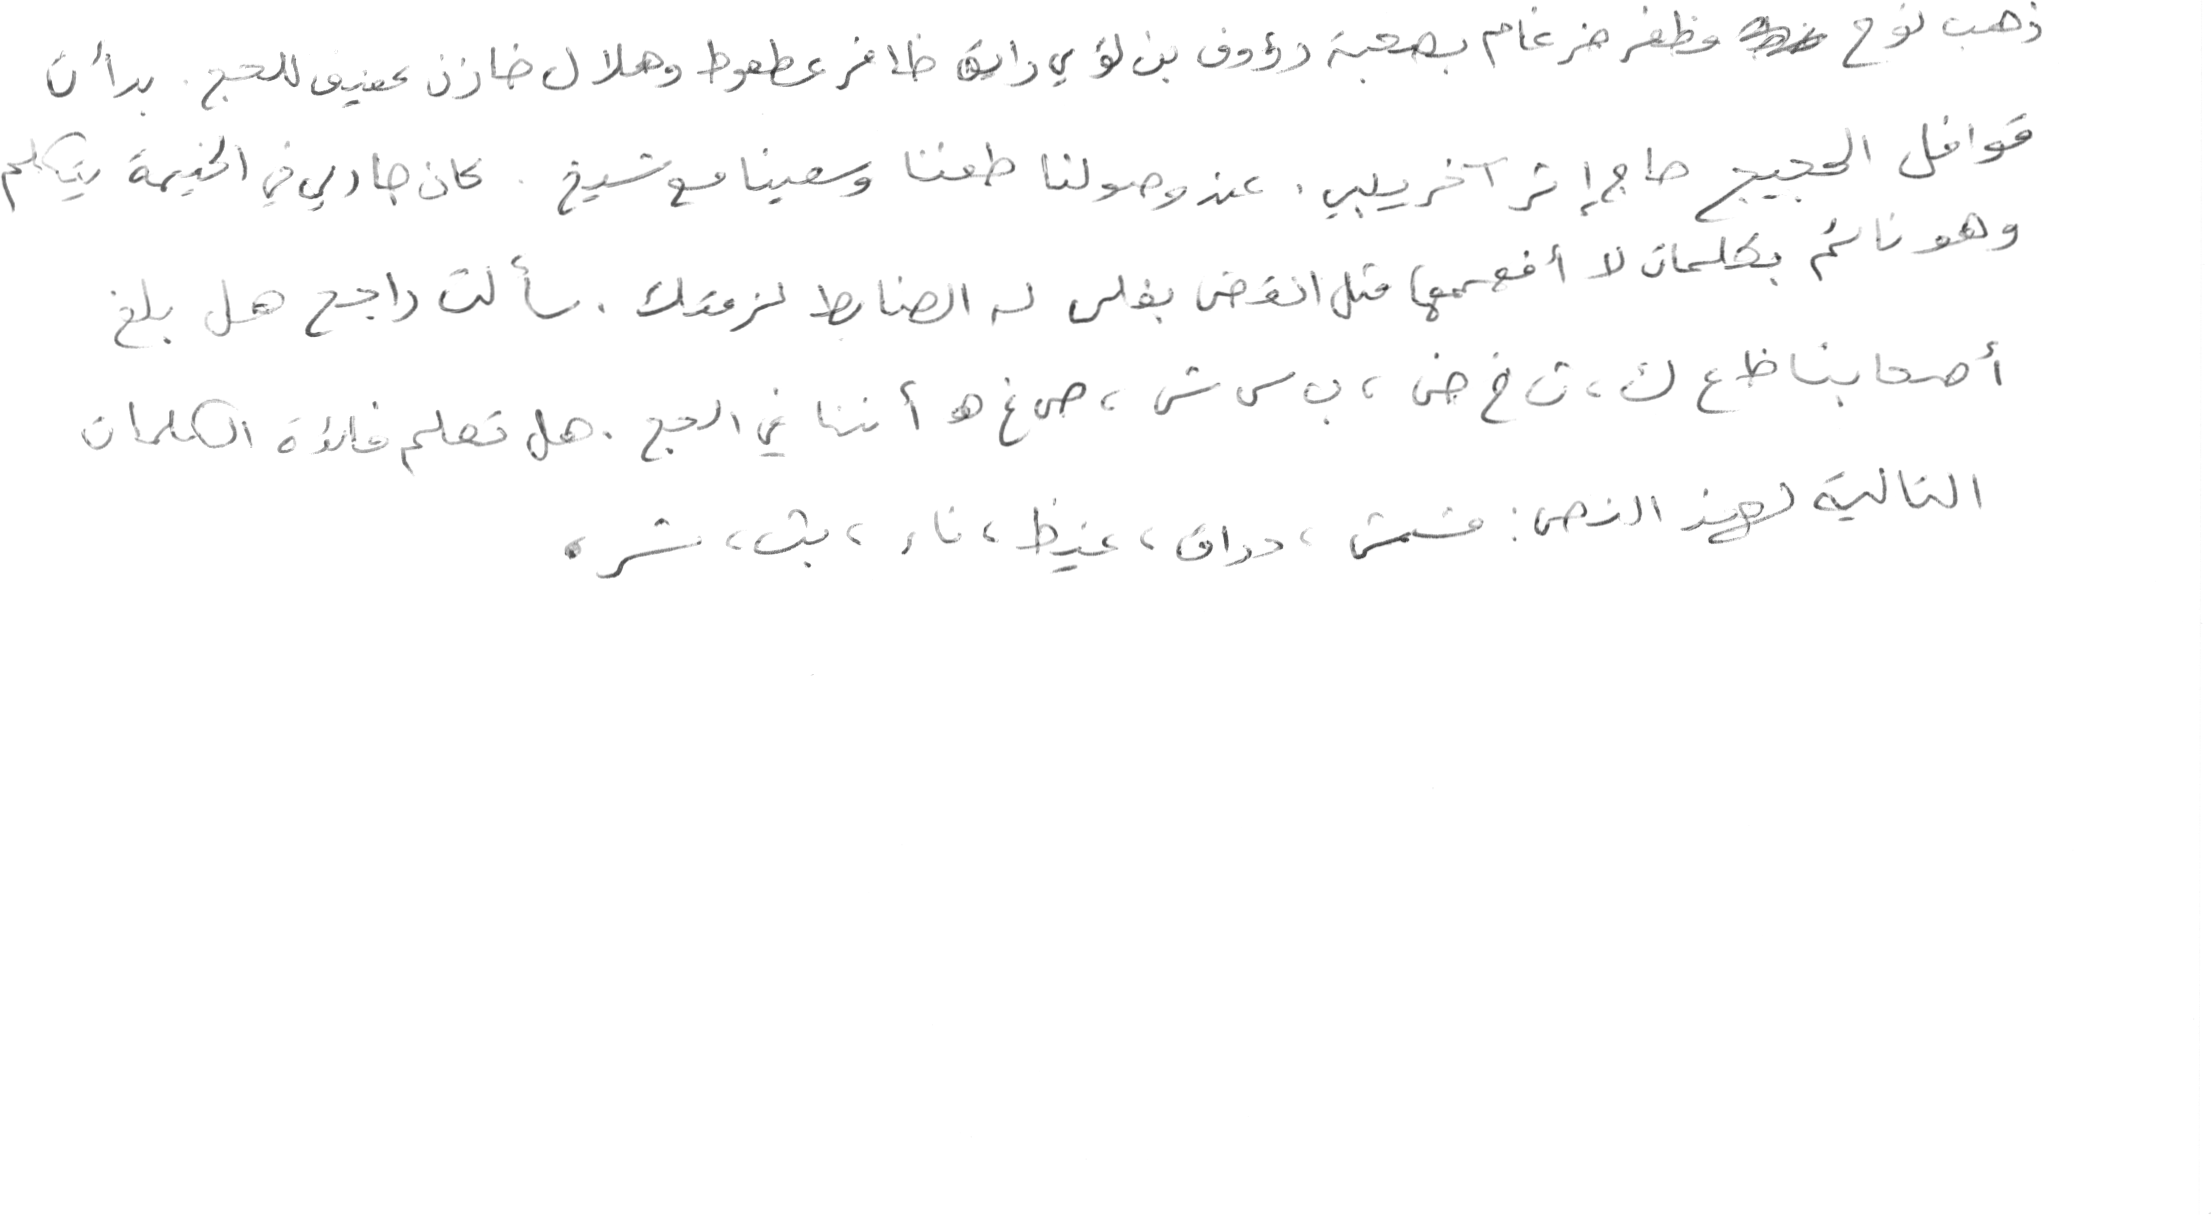 ذهب نوح مظفر ضرغام بصحبة رؤوف بن لؤي رايق ظافر عطعوط وهلال خازن عفيف للحج. بدأت
قوافل الحجيج حاج إثر آخر يلبي. عند وصولنا طفنا وسعينا مع شيخ. كان جاري في الخيمة يتكلم
وهو نائم بكلمات لا أفهمها مثل انقض بفلس له الضابط لزمتك. سألت راجح هل بلغ
أصحابنا ظ ع ك، ث خ ض، ب س ش، ص غ ه أننا في الحج. هل تعلم فائدة الكلمات
التالية لهذ النص: مشمش، دراق، غيظ، ناء، بث، شره